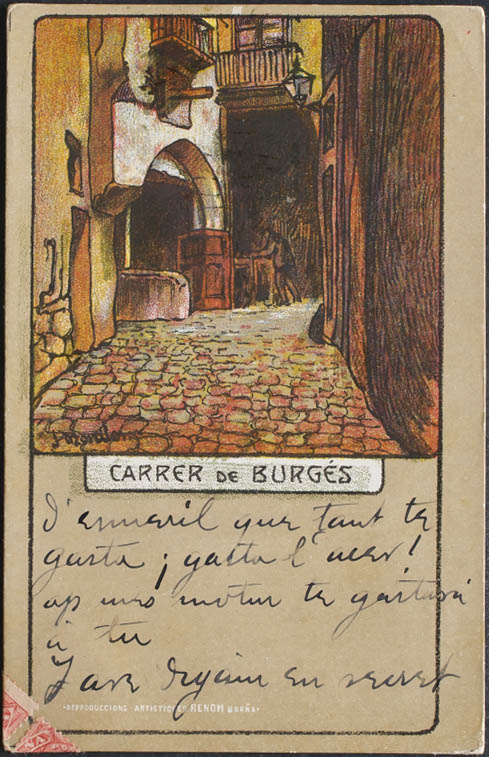 CARRER DE BURGÉS
d'esmeril que tant te
gasta ¡gasta l'acer!
ap mes motiu te gastará
á tu
Y are degám en secret
•REPRODUCCIONS•ARTISTIQUES RENOM BARNA•